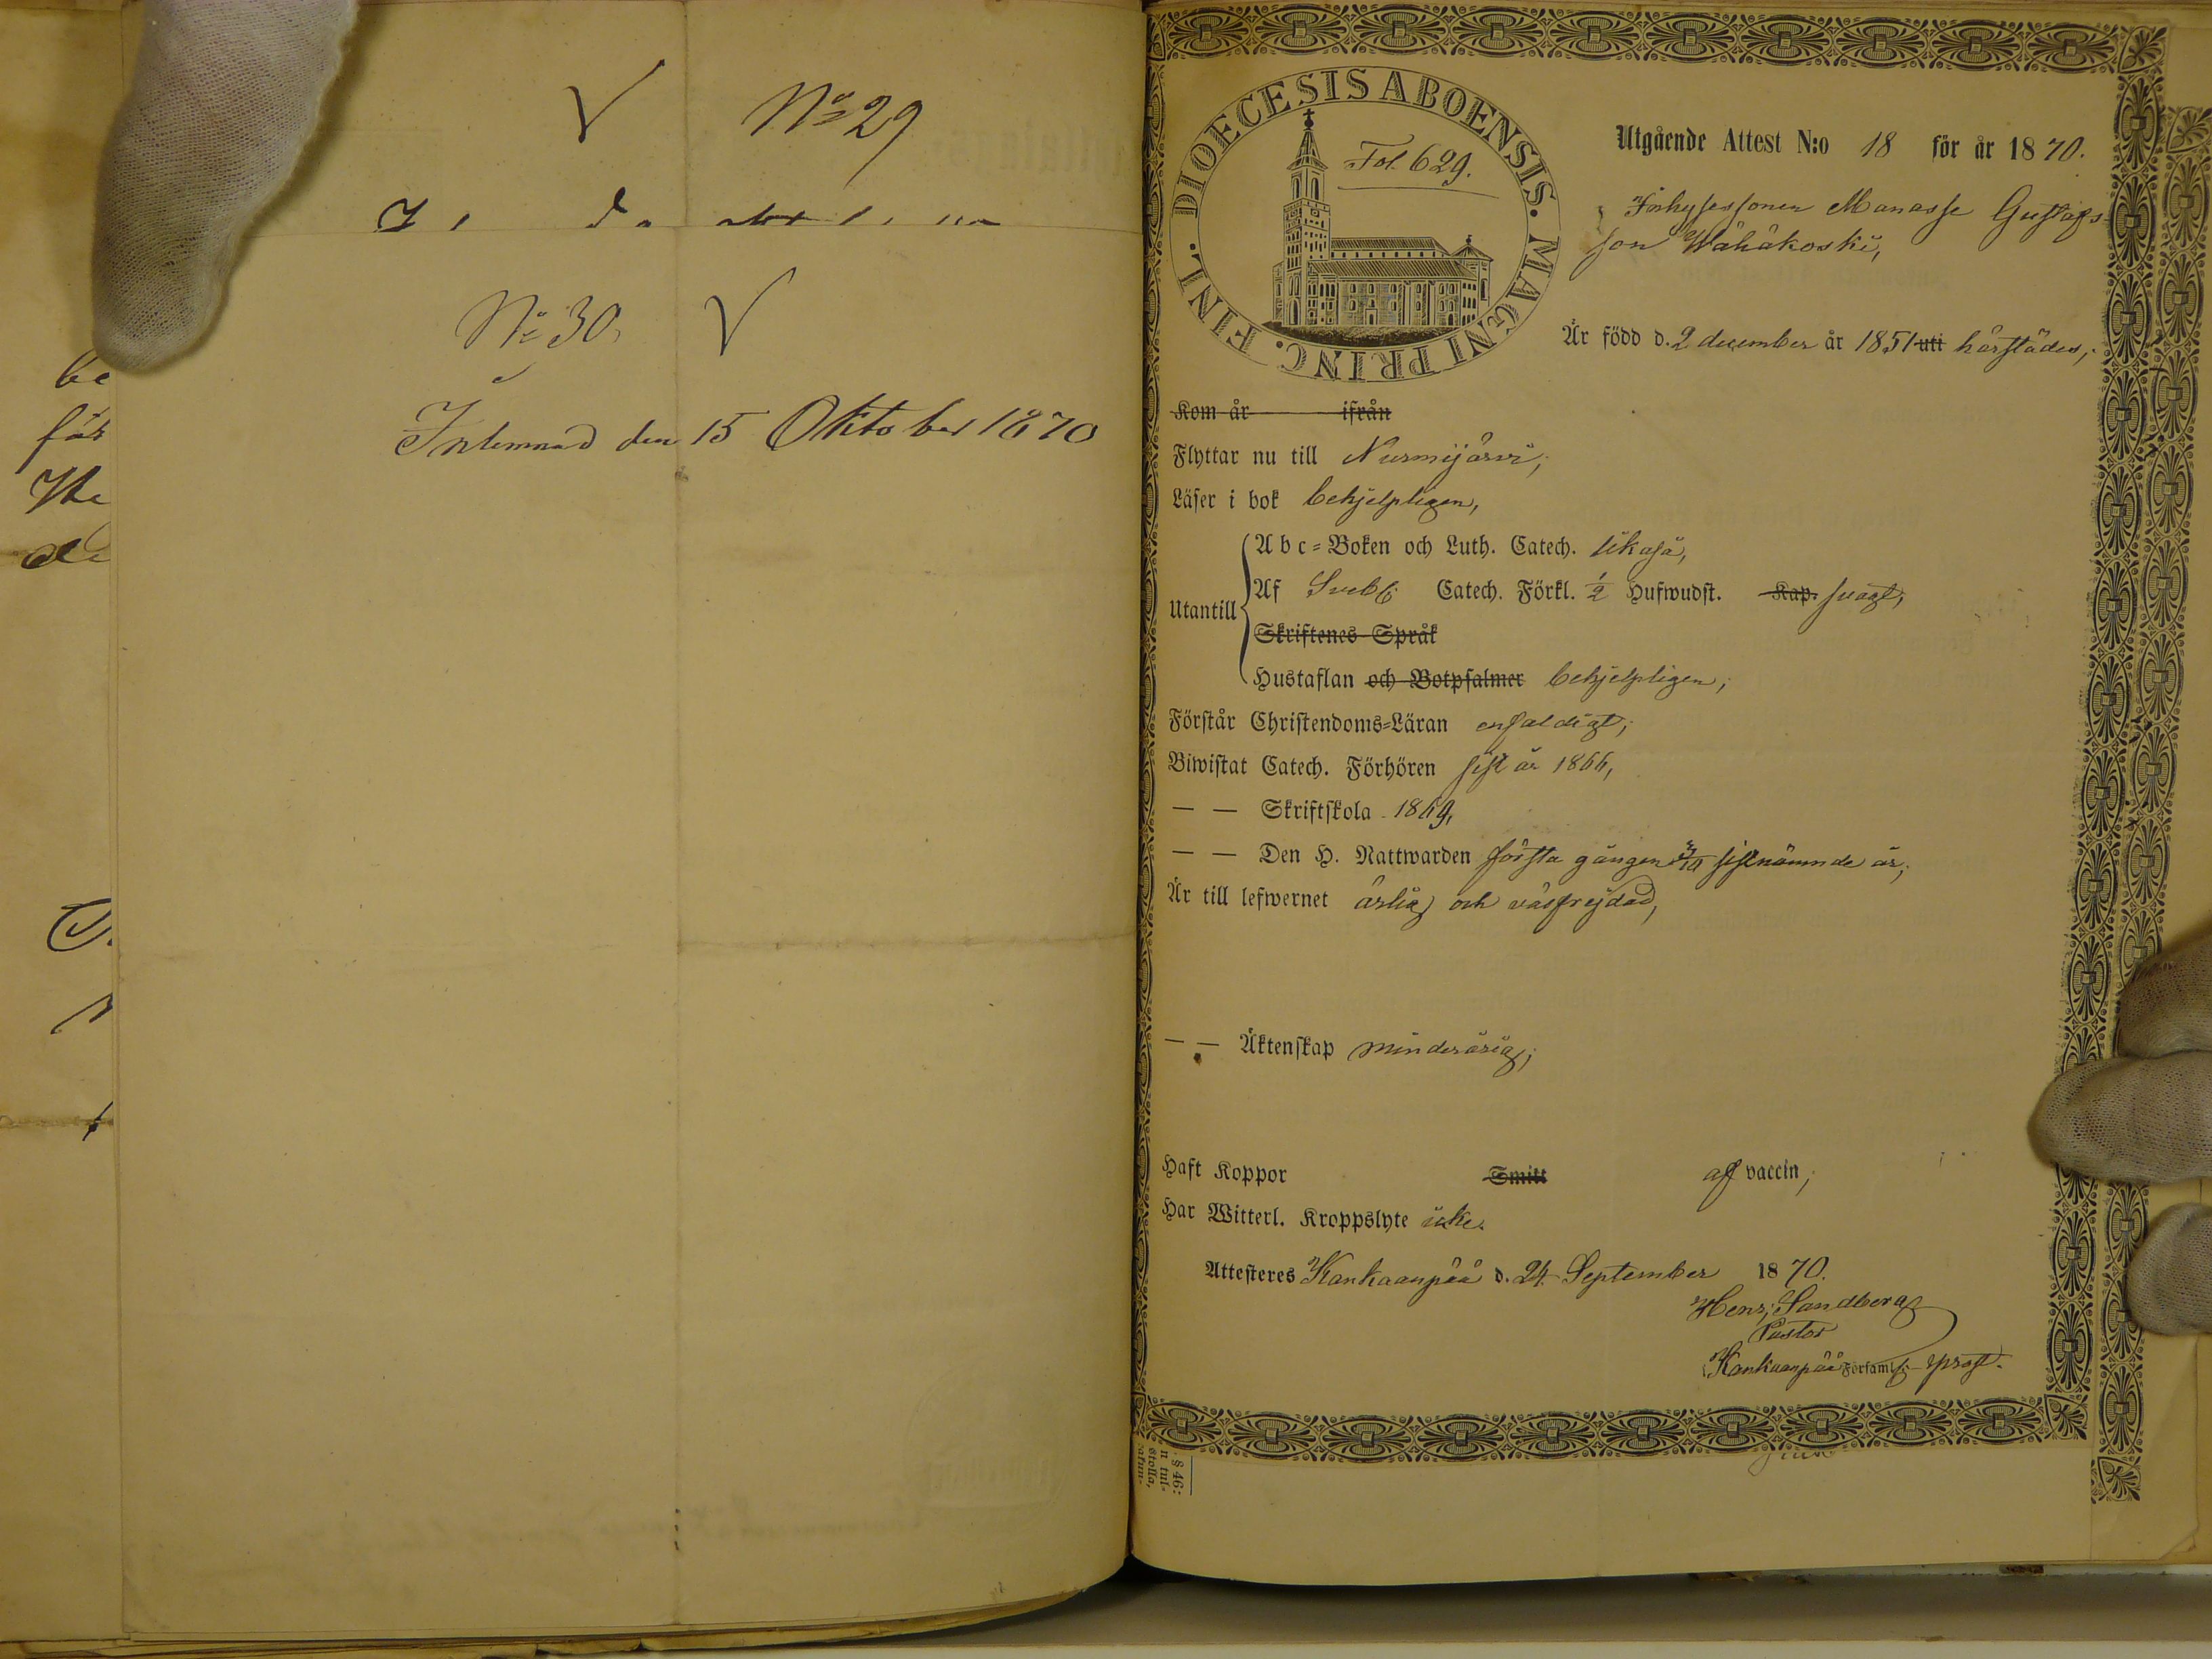 be
för
√ Nº 29
Nº 30. √
Inlemnad den 15 Oktober 1870
DIOECESIS ABOENSIS. MAGNI PRINC. FINL.
Fol. 629.
Utgående Attest N:o 18 för år 1870.
Inhysessonen Manasse Gustafs-
son Wähäkoski,
Är född d. 2 december år 1851 uti härstädes,
Kom år ifrån
Flyttar nu till Nurmijärvi,
Läser i bok behjelpligen,
Utantill
Abc=Boken och Luth. Catech. likaså,
Af Svebb. Catech. Förkl. ½ Hufwudst. Kap. svagt,
Skriftenes Språk
Hustaflan och Botpsalmer behjelpligen,
Förstår Christendoms=Läran enfaldigt,
Biwistat Catech. Förhören sist år 1866,
— — Skriftskola 1869,
— — Den H. Nattwarden första gången sistnämnde år,
Är till lefwernet ärlig och välfrejdad,
— — Äktenskap minderårig,
Haft Koppor Smitt af vaccin,
Har Witterl. Kroppslyte icke.
Attesteres Kankaanpää d. 24 September 1870.
Henr. Sandberg
Pastor
Kankaanpää Församl.
§ 46: